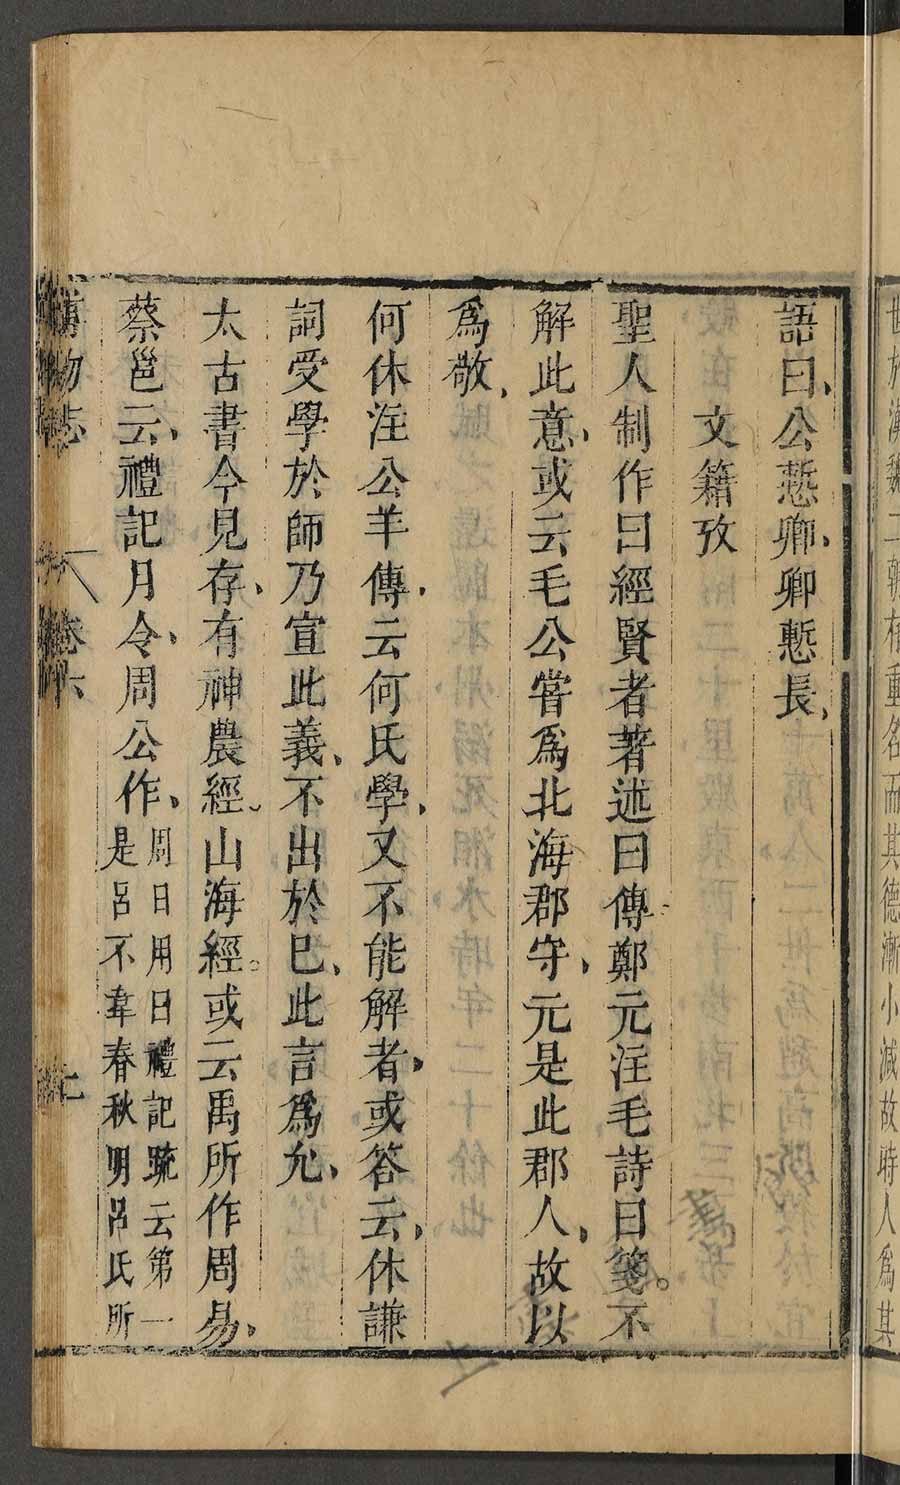 世於漢魏二朝有重名而其德漸小減故時人爲其
語曰、公慙卿、卿慙長、
文籍攷
聖人制作曰經賢者著述曰傳鄭元注毛詩曰箋。不
解此意、或云毛公嘗爲北海郡守、元是此郡人、故以
爲敬、
何休注公羊傳、云何氏學、又不能解者、或答云、休謙
詞受學於師乃宣此義、不出於已、此言爲允、
太古書今見存、有神農經、山海經。或云禹所作周易、
蔡邕云、禮記月令、周公作、
周日用曰禮記疏云第一
是呂不韋春秋明呂氏所
博物志 卷六 七